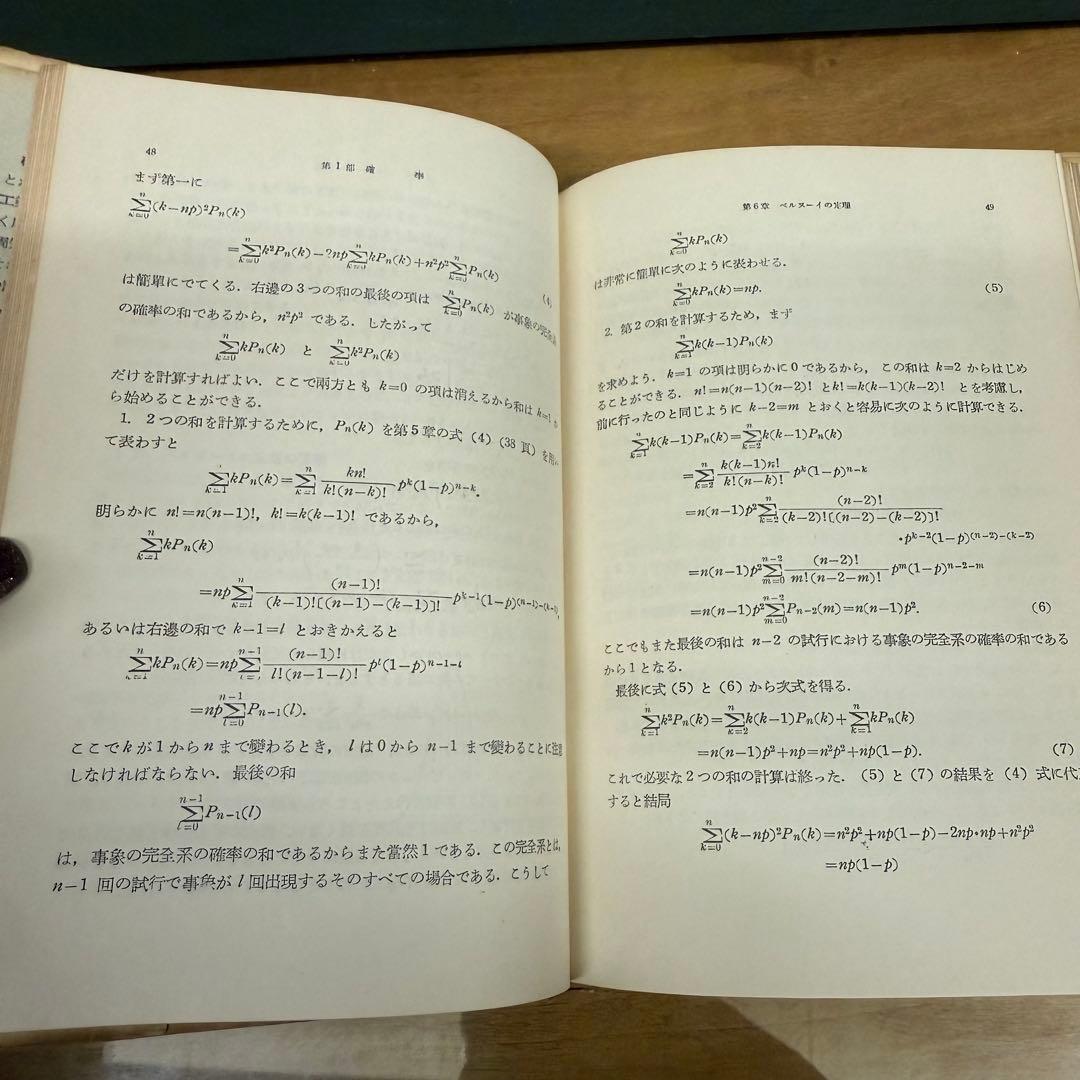 48
第1部 確 率
まず第一に
\sum_{k=0}^{n}(k-np)²P_n(k)
=\sum_{k=0}^{n}k²P_n(k)-2np\sum_{k=0}^{n}kP_n(k)+n²p²\sum_{k=0}^{n}P_n(k)
(4)
は簡單にでてくる．右邊の3つの和の最後の項は \sum_{k=0}^{n}P_n(k) が事象の完全系
の確率の和であるから，n²p² である．したがって
\sum_{k=0}^{n}kP_n(k) と \sum_{k=0}^{n}k²P_n(k)
だけを計算すればよい．ここで兩方とも k=0 の項は消えるから和は k=1 か
ら始めることができる．
1. 2つの和を計算するために，P_n(k) を第5章の式 (4) (38 頁) を用い
て表わすと
\sum_{k=1}^{n}kP_n(k)=\sum_{k=1}^{n}\frac{kn!}{k!(n-k)!}p^k(1-p)^{n-k}.
明らかに n!=n(n-1)!, k!=k(k-1)! であるから，
\sum_{k=1}^{n}kP_n(k)
=np\sum_{k=1}^{n}\frac{(n-1)!}{(k-1)![(n-1)-(k-1)]!}p^{k-1}(1-p)^{(n-1)-(k-1)},
あるいは右邊の和で k-1=l とおきかえると
\sum_{k=1}^{n}kP_n(k)=np\sum_{l=0}^{n-1}\frac{(n-1)!}{l!(n-1-l)!}p^l(1-p)^{n-1-l}
=np\sum_{l=0}^{n-1}P_{n-1}(l).
ここで k が 1 から n まで變わるとき，l は 0 から n-1 まで變わることに注意
しなければならない．最後の和
\sum_{l=0}^{n-1}P_{n-1}(l)
は，事象の完全系の確率の和であるからまた當然1である．この完全系とは，
n-1 回の試行で事象が l 回出現するそのすべての場合である．こうして
第6章 ベルヌーイの定理
49
\sum_{k=0}^{n}kP_n(k)
は非常に簡單に次のように表わせる．
\sum_{k=0}^{n}kP_n(k)=np. (5)
2. 第2の和を計算するため，まず
\sum_{k=1}^{n}k(k-1)P_n(k)
を求めよう．k=1 の項は明らかに0であるから，この和は k=2 からはじめ
ることができる．n!=n(n-1)(n-2)! と k!=k(k-1)(k-2)! とを考慮し，
前に行ったのと同じように k-2=m とおくと容易に次のように計算できる．
\sum_{k=1}^{n}k(k-1)P_n(k)=\sum_{k=2}^{n}k(k-1)P_n(k)
=\sum_{k=2}^{n}\frac{k(k-1)n!}{k!(n-k)!}p^k(1-p)^{n-k}
=n(n-1)p²\sum_{k=2}^{n}\frac{(n-2)!}{(k-2)![(n-2)-(k-2)]!}
・p^{k-2}(1-p)^{(n-2)-(k-2)}
=n(n-1)p²\sum_{m=0}^{n-2}\frac{(n-2)!}{m!(n-2-m)!}p^m(1-p)^{n-2-m}
=n(n-1)p²\sum_{m=0}^{n-2}P_{n-2}(m)=n(n-1)p². (6)
ここでもまた最後の和は n-2 の試行における事象の完全系の確率の和である
から1となる．
最後に式 (5) と (6) から次式を得る．
\sum_{k=1}^{n}k²P_n(k)=\sum_{k=2}^{n}k(k-1)P_n(k)+\sum_{k=1}^{n}kP_n(k)
=n(n-1)p²+np=n²p²+np(1-p). (7)
これで必要な2つの和の計算は終った．(5) と (7) の結果を (4) 式に代
すると結局
\sum_{k=0}^{n}(k-np)²P_n(k)=n²p²+np(1-p)-2np・np+n²p²
=np(1-p)